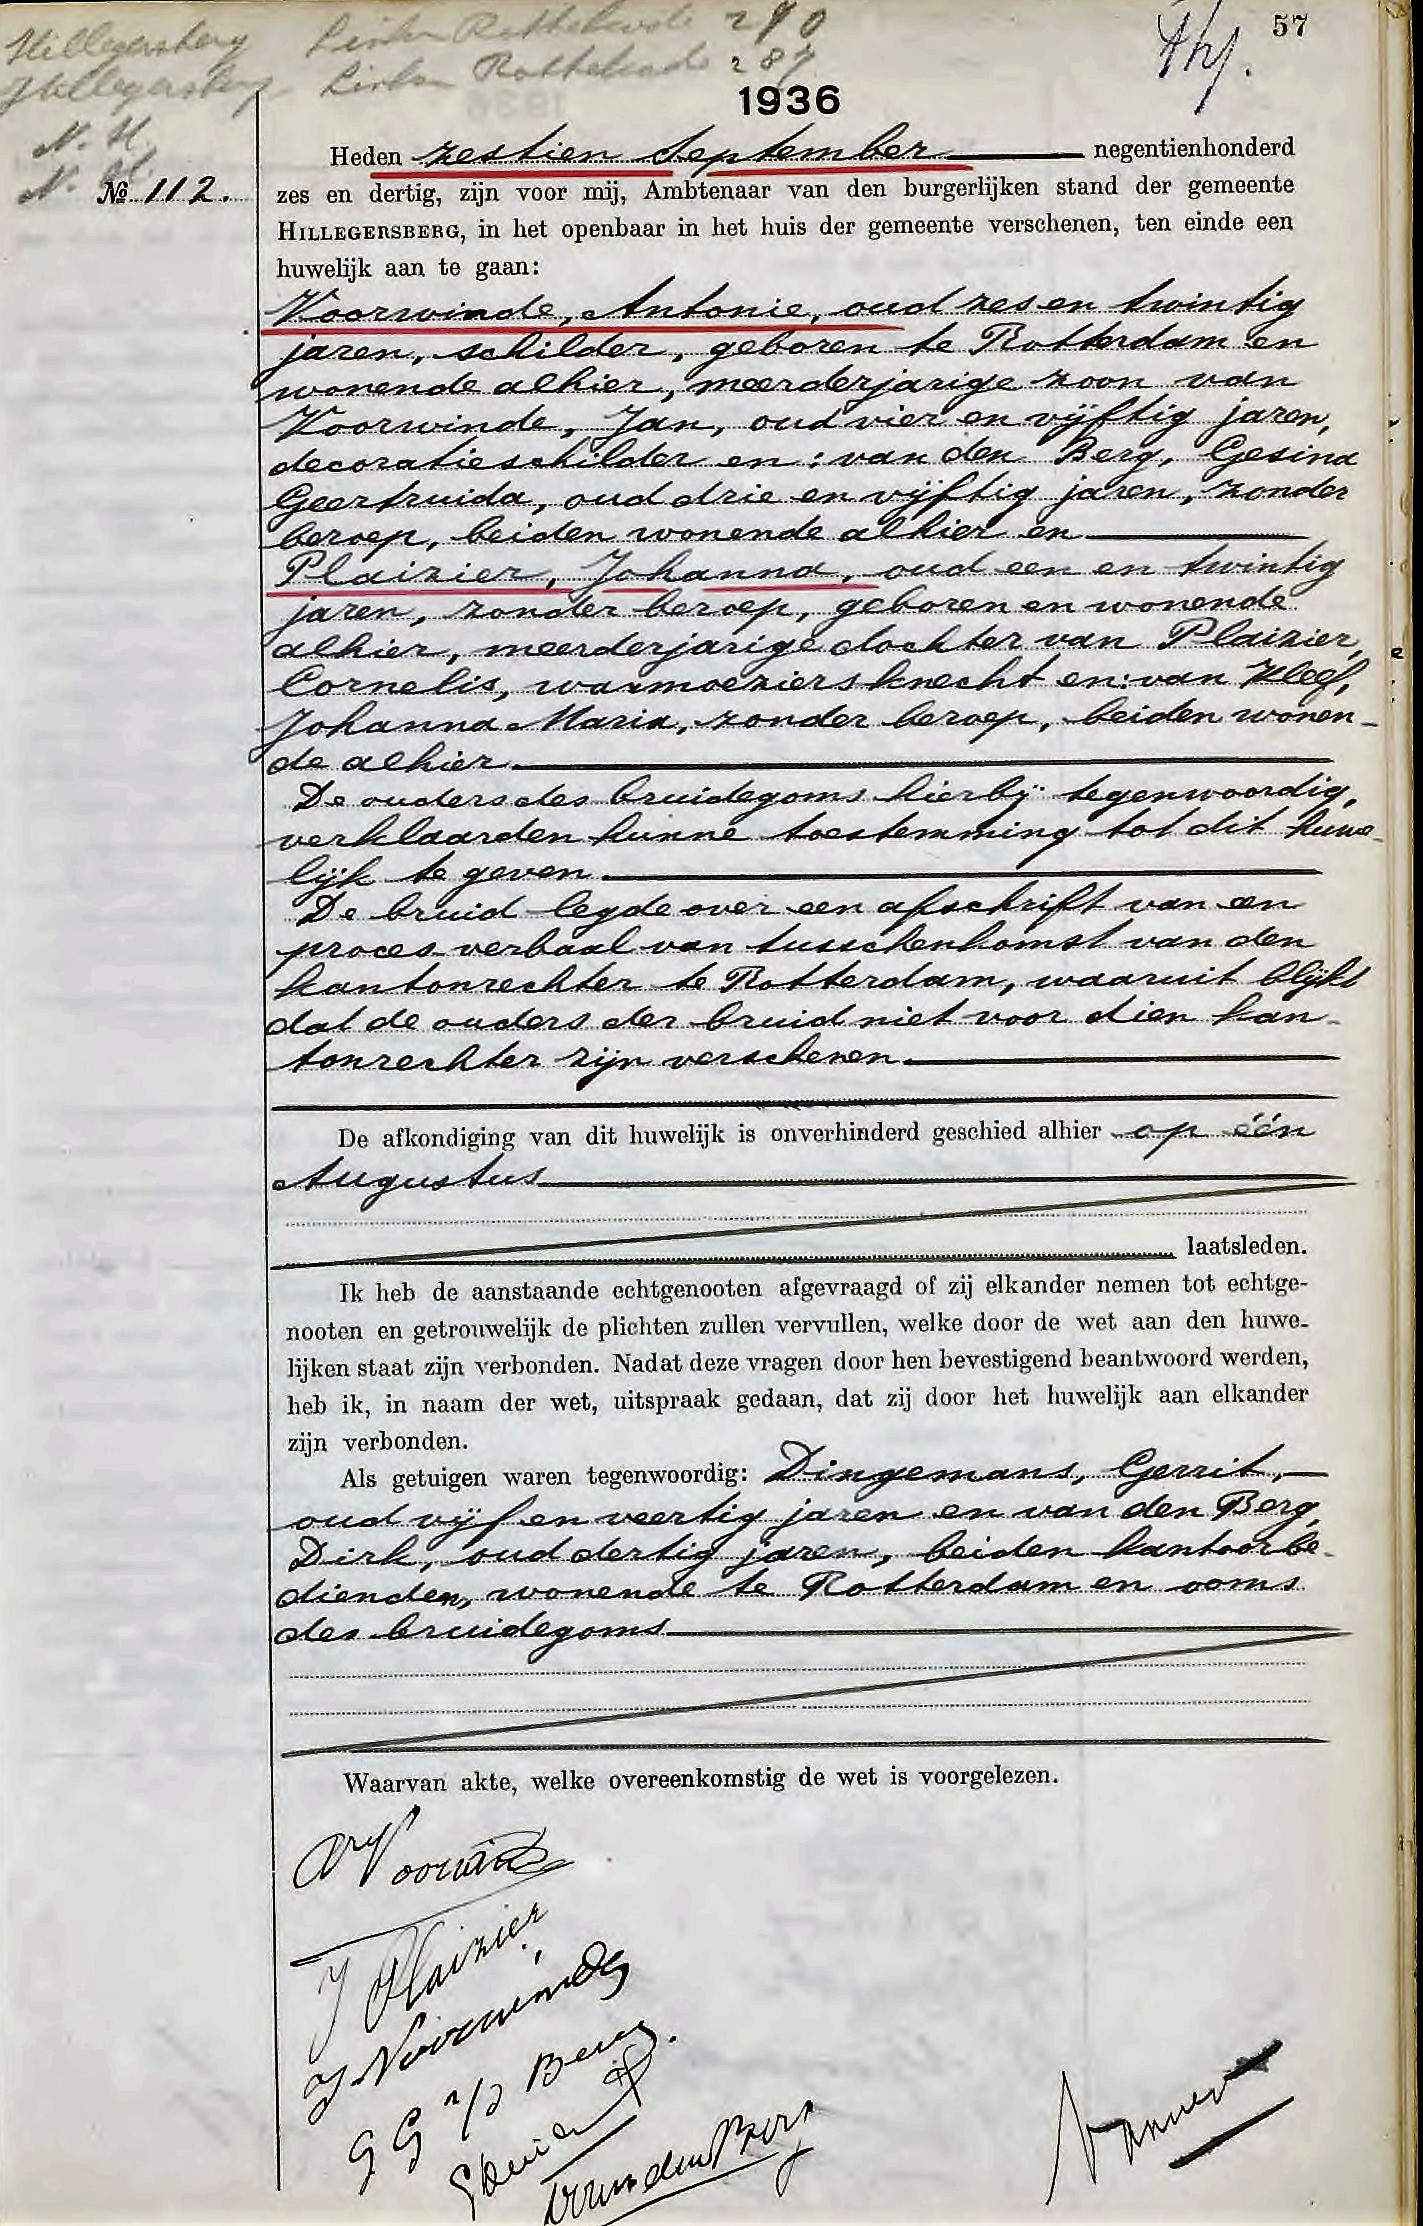 Hillegersberg Linker Rottekade 290
57
Hillegersberg Linker Rottekade 287
1936
N. H.
N. H.
Heden zestien September negentienhonderd
№ 112.
zes en dertig, zijn voor mij, Ambtenaar van den burgerlijken stand der gemeente
HILLEGERSBERG, in het openbaar in het huis der gemeente verschenen, ten einde een
huwelijk aan te gaan:
Voorwinde, Antonie, oud zes en twintig
jaren, schilder, geboren te Rotterdam en
wonende alhier, meerderjarige zoon van
Voorwinde, Jan, oud vier en vijftig jaren,
decoratieschilder en: van den Berg, Gesina
Geertruida, oud drie en vijftig jaren, zonder
beroep, beiden wonende alhier en
Plaizier, Johanna, oud een en twintig
jaren, zonder beroep, geboren en wonende
alhier, meerderjarige dochter van Plaizier,
Cornelis, warmoeziersknecht en: van Kleef,
Johanna Maria, zonder beroep, beiden wonen-
de alhier.
De ouders des bruidegoms hierbij tegenwoordig,
verklaarden hunne toestemming tot dit huwe-
lijk te geven.
De bruid legde over een afschrift van een
proces-verbaal van tusschenkomst van den
kantonrechter te Rotterdam, waaruit blijkt
dat de ouders der bruid niet voor dien kan-
tonrechter zijn verschenen.
De afkondiging van dit huwelijk is onverhinderd geschied alhier op één
Augustus
laatsleden.
Ik heb de aanstaande echtgenooten afgevraagd of zij elkander nemen tot echtge-
nooten en getrouwelijk de plichten zullen vervullen, welke door de wet aan den huwe-
lijken staat zijn verbonden. Nadat deze vragen door hen bevestigend beantwoord werden,
heb ik, in naam der wet, uitspraak gedaan, dat zij door het huwelijk aan elkander
zijn verbonden.
Als getuigen waren tegenwoordig: Dingemans, Gerrit,
oud vijf en veertig jaren en van den Berg,
Dirk, oud dertig jaren, beiden kantoorbe-
dienden, wonende te Rotterdam en ooms
des bruidegoms
Waarvan akte, welke overeenkomstig de wet is voorgelezen.
J Plaizier
J Voorwinde
G G v/d Berg
van den Berg